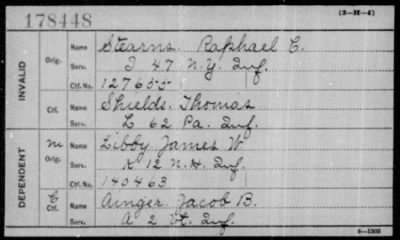 178448
(3-H-4)
INVALID
Orig. Name Stearns. Raphael C.
Serv. I 47 N.Y. Inf.
Ctf. No. 127655
Ctf. Name Shields. Thomas
Serv. L 62 Pa. Inf.
DEPENDENT
m Orig. Name Libby James W
Serv. K 12 N.H. Inf.
Ctf. No. 140463
C Ctf. Name Ainger Jacob B.
Serv. A 2 Vt. Inf.
6-1303